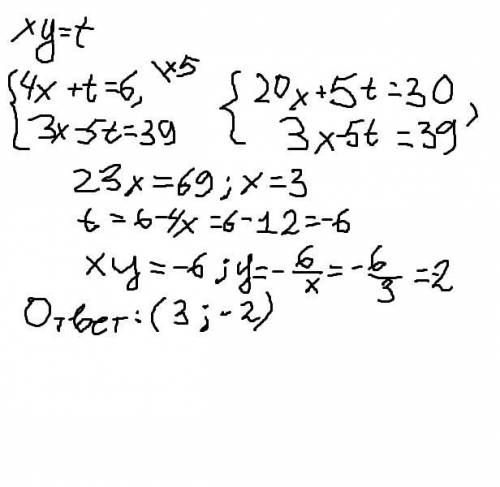 xy=t
{4x+t=6, |x5 {20x+5t=30,
{3x-5t=39 {3x-5t=39
23x=69; x=3
t=6-4x=6-12=-6
xy=-6; y=-6/x=-6/3=-2
Ответ: (3; -2)